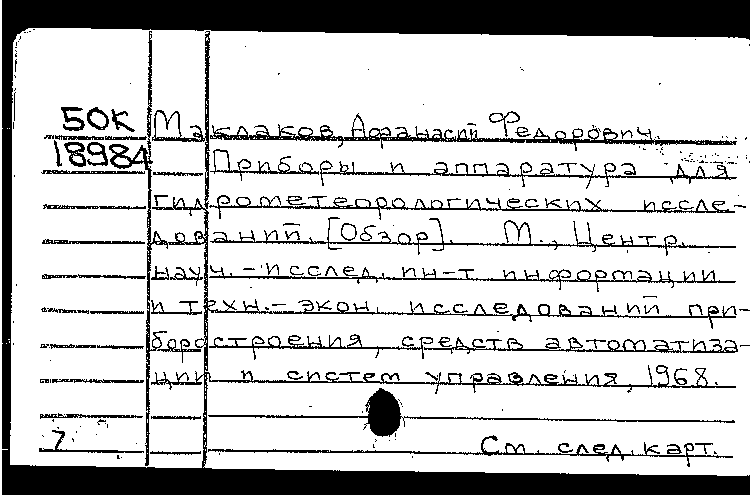 50К Маклаков, Афанасий Федорович.
18984 Приборы и аппаратура для
гидрометеорологических иссле-
дований. [Обзор]. М., Центр.
науч.-исслед. ин-т информации
и техн.-экон. исследований при-
боростроения, средств автоматиза-
ции и систем управления, 1968.
7 См. след. карт.